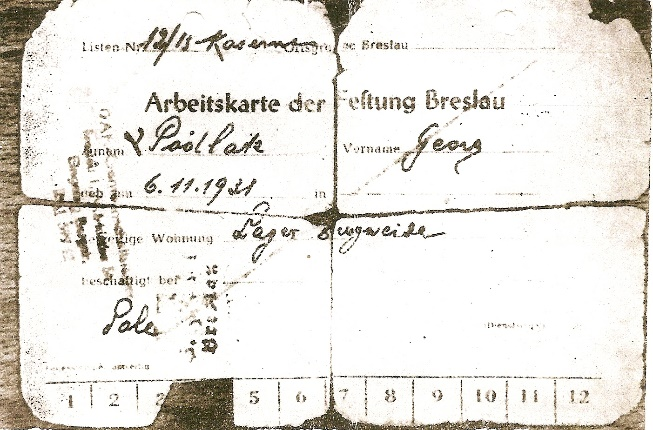 Listen-Nr. 12/15 Kaserne Ortsgruppe Breslau
Arbeitskarte der Festung Breslau
Zuname Podlak Vorname Georg
geb. am 6.11.1921 in
Wohnung Lager Burgweide
beschäftigt bei
Pole Breslau
Dienststempel
1 2 3 5 6 7 8 9 10 11 12